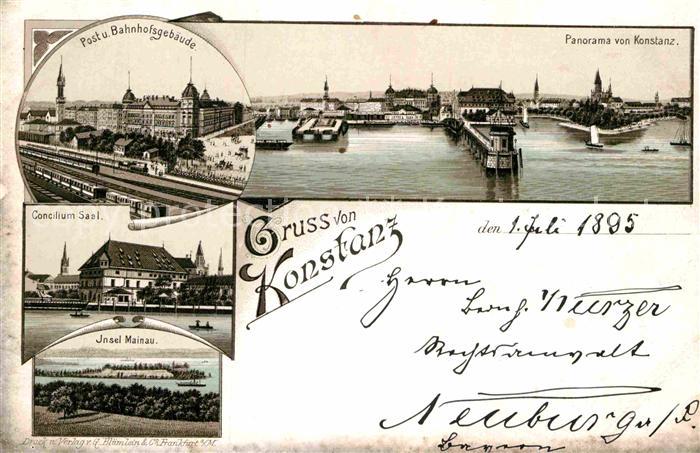 Post u. Bahnhofsgebäude.
Panorama von Konstanz.
Concilium Saal.
Gruss von
Konstanz
den 1. Juli 1895
Herrn
Bernh. Wurzer
Rechtsanwalt
Neuburg a/D.
Bayern
Insel Mainau.
Druck u. Verlag v. G. Blümlein & Co. Frankfurt a/M.